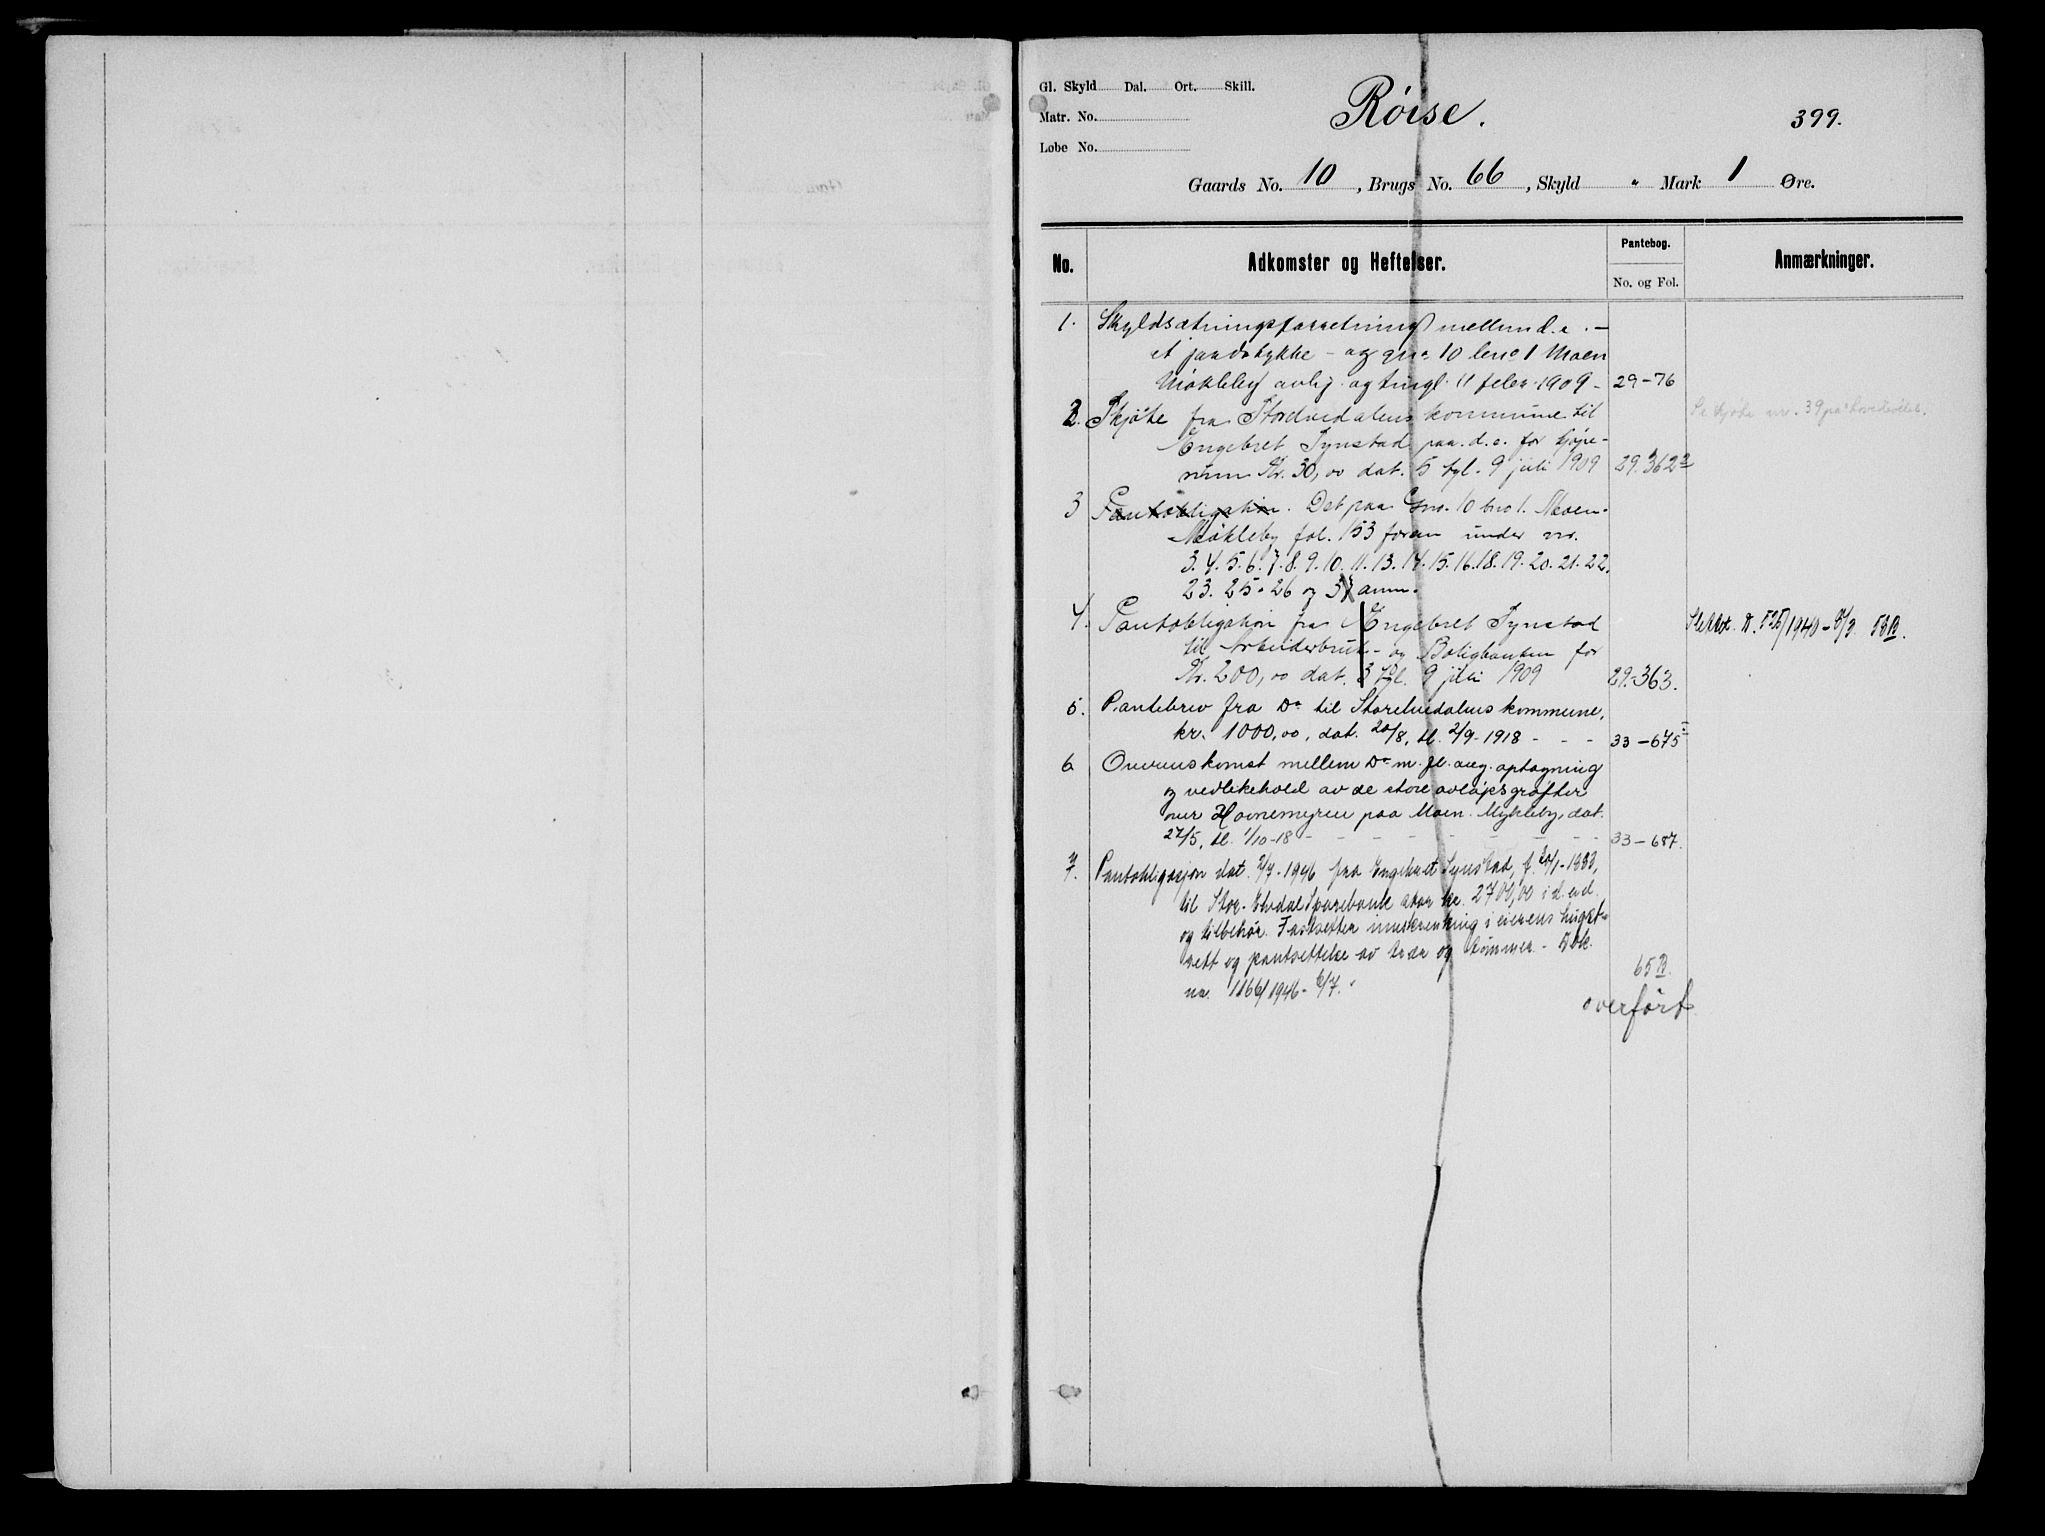 Gl. Skyld Dal. Ort. Skill.
Matr. No.
Løbe No.
Røise.
399.
Gaards No. 10, Brugs No. 66, Skyld " Mark 1 Øre.
No.
Adkomster og Heftelser.
Pantebog.
No. og Fol.
Anmærkninger.
1. Skyldsætningsforretning mellem d.e. –
et jordstykke – og gno 10 bno 1 Moen
Møkleby avhj. og tingl. 11 febr. 1909 – 29–76
2. Skjøte fra Storelvedalens kommune til
Engebret Tynstad paa d.e. for kjøpe-
sum Kr. 30,00 dat. 5 tgl. 9 juli 1909 29.362
Se skjøte nr. 39 på
3 Pantobligation. Det paa Gno. 10 bno 1. Moen-
Møkleby fol. 153 foran under nr.
3. 4. 5. 6. 7. 8. 9. 10. 11. 13. 14. 15. 16. 18. 19. 20. 21. 22.
23. 25. 26 og anm.
4. Pantobligation fra Engebret Tynstad
til Arbeiderbruk- og Boligbanken for
Kr. 200,00 dat. 3 tgl. 9 juli 1909 29.–363.
Slettet. D. 1940 – /3 58B.
5. Pantebrev fra Do til Storelvedalens kommune,
kr. 1000,00, dat. 20/8, tl. 2/9-1918 - - - 33–675
6 Overenskomst mellem Do m. fl. ang. optagning
og vedlikehold av de store avløpsgrøfter
over Hovnemyren paa Moen Mykleby, dat.
27/5, tl. 1/10-18 - - - - - - - - 33–687.
7. Pantobligasjon dat. 2/7-1946 fra Engebret Tynstad, f. 20/1-1883,
til Stor-Elvdal Sparebank stor kr. 2700,00 i d. eid.
og tilbehør. Fastsetter innskrenkning i eierens hugst-
rett og pantsettelse av trær og tømmer. – Dok.
nr. 1166/1946 – 6/7. 65B.
overført